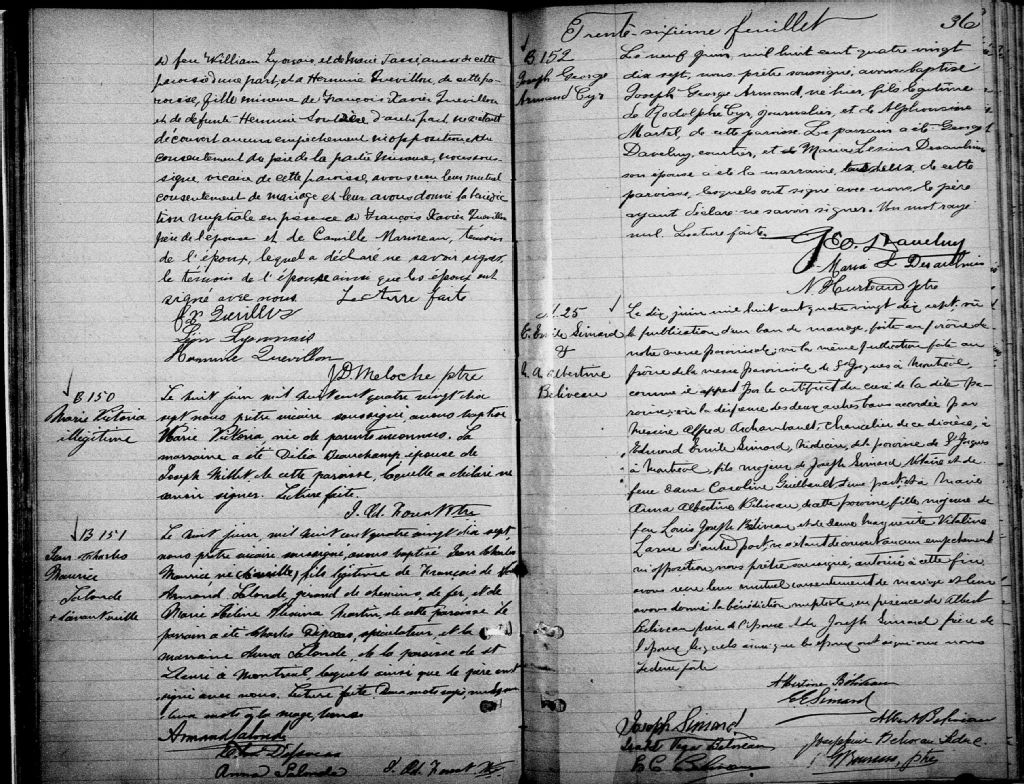 de feu William Lyonais, et de Marie Tassé, aussi de cette
paroisse d'une part, et d'Hermine Quevillon, de cette pa-
roisse, fille mineure de François Xavier Quevillon
et de défunte Hermine d'autre part, ne s'étant
découvert aucun empêchement ni opposition, et du
consentement du père de la partie mineure, nous sous-
signé, vicaire de cette paroisse, avons reçu leur mutuel
consentement de mariage et leur avons donné la bénédic
tion nuptiale en présence de François Xavier Quevillon
père de l'épouse et de Camille témoin
de l'époux, lequel a déclaré ne savoir signer,
le témoin de l'épouse ainsi que les époux ont
signé avec nous. Lecture faite
fx Quevillon
Lyonnais
Hermine Quevillon
J.D. Meloche ptre
B 150
Marie Victoria
illégitime
Le huit juin mil huit cent quatre vingt dix
sept nous prêtre vicaire soussigné, avons baptisé
Marie Victoria, née de parents inconnus. La
marraine a été Délia Beauchamp épouse de
Joseph Millet de cette paroisse, laquelle a déclaré ne
savoir signer. Lecture faite.
J. Ad. Ptre
B 151
Jean Charles
Maurice
Lalonde
+ l'avant veille
Le huit juin, mil huit cent quatre vingt dix sept,
nous prêtre vicaire soussigné, avons baptisé Jean Charles
Maurice né fils légitime de François de
Armand Lalonde, gérand de chemins, de fer, et de
Marie Hélène Martin, de cette paroisse. Le
parrain a été Charles spéculateur, et la
marraine Anna Lalonde, de la paroisse de st
Henri à Montréal, lesquels ainsi que le père ont
signé avec nous. Lecture faite
Deux mots
Armand Lalonde
Anna Lalonde J. Ad. Ptre
Trente-sixième feuillet 36
B 152
Joseph George
Armand Cyr
Le neuf juin, mil huit cent quatre vingt
dix sept, nous, prêtre soussigné, avons baptisé
Joseph George Armand, né hier, fils légitime
de Rodolphe Cyr, journalier, et de Alphonsine
Martel, de cette paroisse. Le parrain a été George
Daveluy, courtier, et Maria Lesieur Desaulniers
son épouse a été la marraine, tous de cette
paroisse, lesquels ont signé avec nous, le père
ayant déclaré ne savoir signer. Un mot rayé
nul. Lecture faite
Geo. Daveluy
Maria L Desaulniers
N Hurteau ptre
M. 25
E. Emile Simard
&
M. A. Albertine
Béliveau
Le dix juin mil huit cent quatre vingt dix sept, vu
la publication d'un ban de mariage, faite au prône de
notre messe paroissiale; vu la même publication faite au
prône de la messe paroissiale de St Jacques à Montréal,
comme il appert par le certificat du curé de la dite pa-
roisse; vu la dispense des deux autres bans accordée par
Messire Alfred Archambault, chancelier de ce diocèse, à
Edmond Emile Simard, médecin, de la paroisse de St Jacques
à Montréal, fils majeur de Joseph Simard Notaire et de
feue dame Caroline Guilbault d'une part, et à Marie
Anna Albertine Béliveau de cette paroisse, fille majeure de
feu Louis Joseph Béliveau et de dame Marguerite Vitaline
Larue d'autre part, ne s'étant découvert aucun empêchement
ni opposition, nous prêtre soussigné, autorisé à cette fin
avons reçu leur mutuel consentement de mariage et leur
avons donné la bénédiction nuptiale, en présence de Albert
Béliveau frère de l'épouse et de Joseph Simard frère de
l'époux lesquels ainsi que les époux ont signé avec nous
Lecture faite
Albertine Béliveau
E E Simard
Joseph Simard Albert Béliveau
Béliveau Joséphine Béliveau
ptre